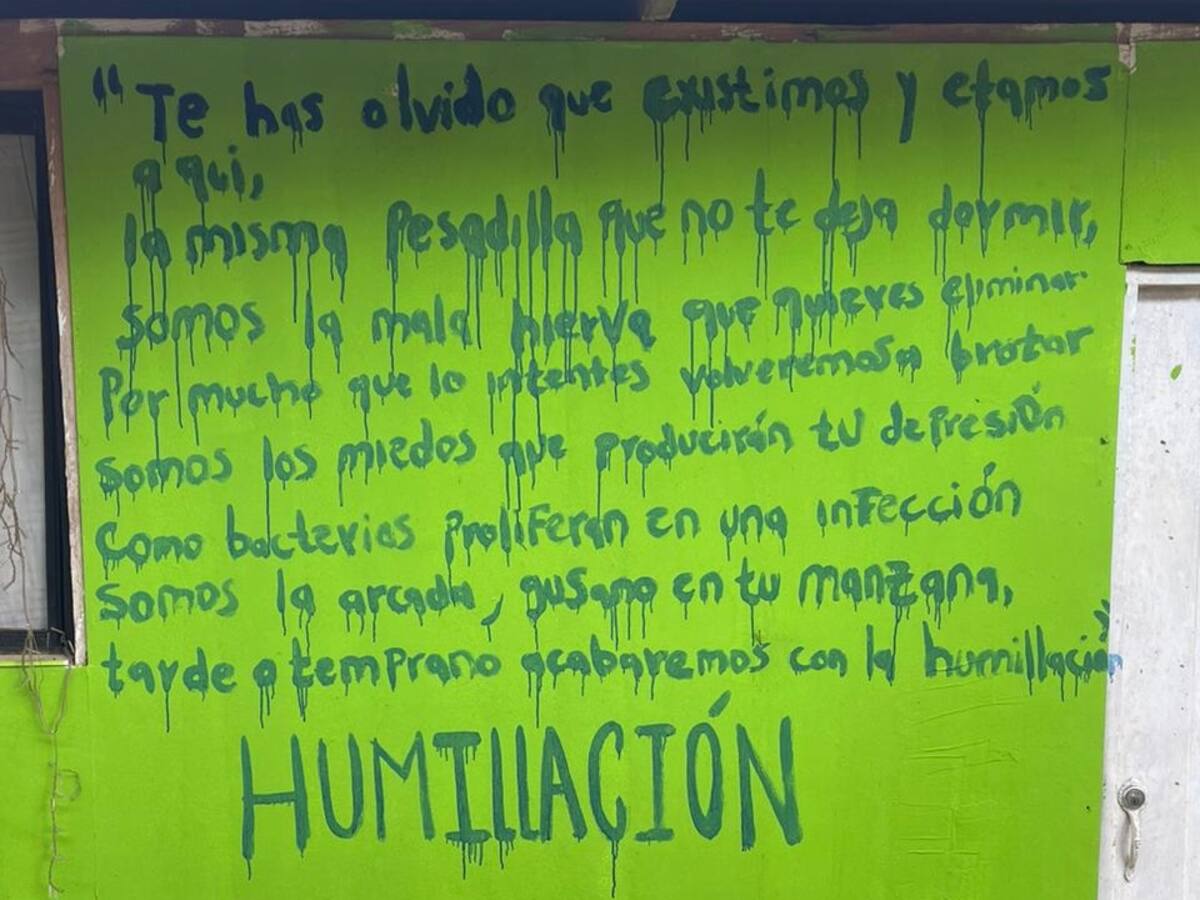 "Te has olvido que existimos y etamos
aqui,
la misma Pesadilla que no te deja dormir,
somos la mala hierva que quieres eliminar
Por mucho que lo intentes volveremos a brotar
somos los miedos que producirán tu depresión
Como bacterias proliferan en una infección
somos la arcada, gusano en tu manzana,
tarde o temprano acabaremos con la humillación"
HUMILLACIÓN